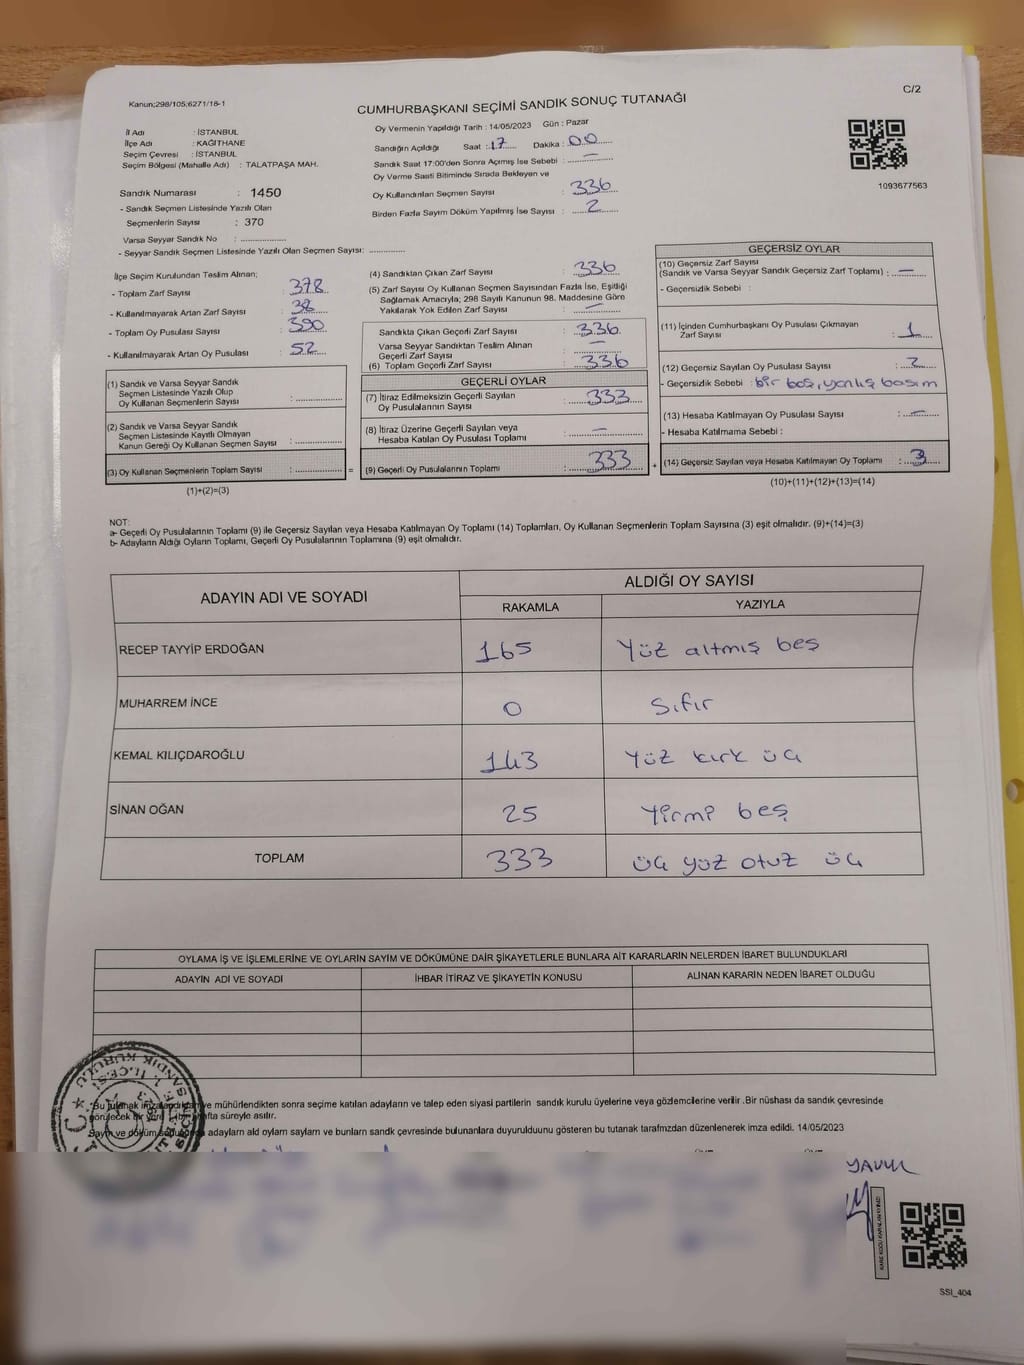 Kanun;298/105;6271/16-1
C/2
CUMHURBAŞKANI SEÇİMİ SANDIK SONUÇ TUTANAĞI
İl Adı : İSTANBUL
İlçe Adı : KAĞITHANE
Seçim Çevresi : İSTANBUL
Seçim Bölgesi (Mahalle Adı) : TALATPAŞA MAH.
Sandık Numarası : 1450
- Sandık Seçmen Listesinde Yazılı Olan
Seçmenlerin Sayısı : 370
Varsa Seyyar Sandık No :
- Seyyar Sandık Seçmen Listesinde Yazılı Olan Seçmen Sayısı:
Oy Vermenin Yapıldığı Tarih : 14/05/2023 Gün : Pazar
Sandığın Açıldığı Saat : 17 Dakika : 00
Sandık Saat 17:00'den Sonra Açımış İse Sebebi : —
Oy Verme Saati Bitiminde Sırada Bekleyen ve
Oy Kullandırılan Seçmen Sayısı : 336
Birden Fazla Sayım Döküm Yapılmış İse Sayısı : 2
1093677563
İlçe Seçim Kurulundan Teslim Alınan;
- Toplam Zarf Sayısı : 378
- Kullanılmayarak Artan Zarf Sayısı : 38
- Toplam Oy Pusulası Sayısı : 390
- Kullanılmayarak Artan Oy Pusulası : 52
(1) Sandık ve Varsa Seyyar Sandık
Seçmen Listesinde Yazılı Olup
Oy Kullanan Seçmenlerin Sayısı :
(2) Sandık ve Varsa Seyyar Sandık
Seçmen Listesinde Kayıtlı Olmayan
Kanun Gereği Oy Kullanan Seçmen Sayısı :
(3) Oy Kullanan Seçmenlerin Toplam Sayısı : =
(1)+(2)=(3)
(4) Sandıktan Çıkan Zarf Sayısı : 336
(5) Zarf Sayısı Oy Kullanan Seçmen Sayısından Fazla İse, Eşitliği
Sağlamak Amacıyla; 298 Sayılı Kanunun 98. Maddesine Göre
Yakılarak Yok Edilen Zarf Sayısı : —
Sandıkta Çıkan Geçerli Zarf Sayısı : 336
Varsa Seyyar Sandıktan Teslim Alınan
Geçerli Zarf Sayısı : —
(6) Toplam Geçerli Zarf Sayısı : 336
GEÇERLİ OYLAR
(7) İtiraz Edilmeksizin Geçerli Sayılan
Oy Pusulalarının Sayısı : 333
(8) İtiraz Üzerine Geçerli Sayılan veya
Hesaba Katılan Oy Pusulası Toplamı : —
(9) Geçerli Oy Pusulalarının Toplamı : 333 +
GEÇERSİZ OYLAR
(10) Geçersiz Zarf Sayısı
(Sandık ve Varsa Seyyar Sandık Geçersiz Zarf Toplamı) : —
- Geçersizlik Sebebi :
(11) İçinden Cumhurbaşkanı Oy Pusulası Çıkmayan
Zarf Sayısı : 1
(12) Geçersiz Sayılan Oy Pusulası Sayısı : 2
- Geçersizlik Sebebi : bir boş, yanlış basım
(13) Hesaba Katılmayan Oy Pusulası Sayısı : —
- Hesaba Katılmama Sebebi :
(14) Geçersiz Sayılan veya Hesaba Katılmayan Oy Toplamı : 3
(10)+(11)+(12)+(13)=(14)
NOT:
a- Geçerli Oy Pusulalarının Toplamı (9) ile Geçersiz Sayılan veya Hesaba Katılmayan Oy Toplamı (14) Toplamları, Oy Kullanan Seçmenlerin Toplam Sayısına (3) eşit olmalıdır. (9)+(14)=(3)
b- Adayların Aldığı Oyların Toplamı, Geçerli Oy Pusulalarının Toplamına (9) eşit olmalıdır.
ADAYIN ADI VE SOYADI ALDIĞI OY SAYISI
RAKAMLA YAZIYLA
RECEP TAYYİP ERDOĞAN 165 Yüz altmış beş
MUHARREM İNCE 0 Sıfır
KEMAL KILIÇDAROĞLU 143 Yüz kırk üç
SİNAN OĞAN 25 Yirmi beş
TOPLAM 333 üç yüz otuz üç
OYLAMA İŞ VE İŞLEMLERİNE VE OYLARIN SAYIM VE DÖKÜMÜNE DAİR ŞİKAYETLERLE BUNLARA AİT KARARLARIN NELERDEN İBARET BULUNDUKLARI
ADAYIN ADI VE SOYADI İHBAR İTİRAZ VE ŞİKAYETİN KONUSU ALINAN KARARIN NEDEN İBARET OLDUĞU
SANDIK KURULU
"Bu tutanak ve mühürlendikten sonra seçime katılan adayların ve talep eden siyasi partilerin sandık kurulu üyelerine veya gözlemcilerine verilir .Bir nüshası da sandık çevresinde
görülecek bir yere hafta süreyle asılır.
Sayım ve döküm adayların ald oyların sayların ve bunların sandk çevresinde bulunanlara duyurulduunu gösteren bu tutanak tarafmzdan düzenlenerek imza edildi. 14/05/2023
YAVUZ
SSI_404